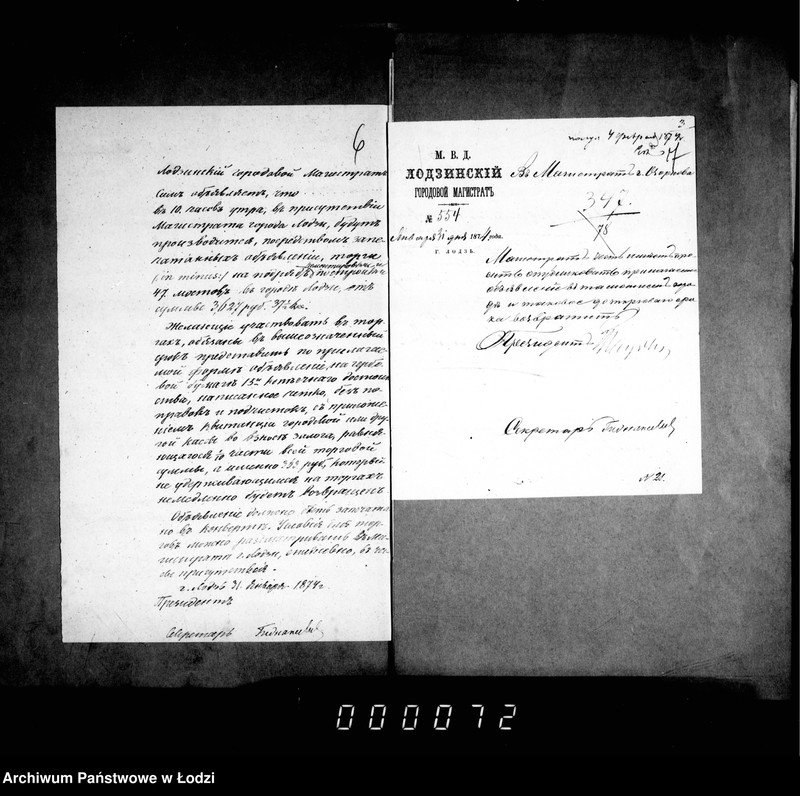 6
Лодзинскій городовой Магистратъ
симъ объявляетъ, что
въ 10. часовъ утра, въ присутствіи
Магистрата города Лодзи, будутъ
производится, посредствомъ запе-
чатанныхъ объявленій, торги
/:in minus:/ на подрядъ постройки
47. мостовъ въ городѣ Лодзи, отъ
суммы 3,627 руб. 37½ к.
Желающіе участвовать въ тор-
гахъ, обязаны въ вышеозначенный
срокъ представить по прилагае-
мой формѣ объявленія, на гербо-
вой бумагѣ 15ти копѣечнаго достоин-
ства, написанное четко, безъ по-
правокъ и подчистокъ, съ приложе-
ніемъ квитанціи городовой или дру-
гой кассы во взносѣ залога, равня-
ющагося 1/10 части всей торговой
суммы, а именно 363 руб., который
не удержавшимся на торгахъ
немедленно будетъ возвращенъ
Объявленіе должно быть запечата-
но въ конвертѣ. Условія для тор-
говъ можно разсматривать въ Ма-
гистратѣ г. Лодзи, ежедневно, въ ча-
сы присутствія.
г. Лодзь 31. Января 1874 г.
Президентъ
Секретарь
3
4 февраля 1874 г.
М. В. Д.
ЛОДЗИНСКІЙ
ГОРОДОВОЙ МАГИСТРАТЪ
№ 554
Января 31 дня 1874 года.
Г. ЛОДЗЬ.
Въ Магистратъ г. Озоркова
347.
78
Магистратъ
Президентъ
Секретарь
N 21.
000072
Archiwum Państwowe w Łodzi